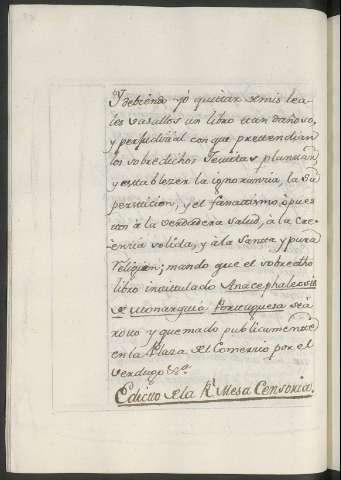 Y debiendo yó quitar de mis lea-
les vasallos un libro tan dañoso,
y perjudicial con que prettendian
los sobredichos Jesuitas plantar
y establezer la ignorancia, la su
persticion, y el fanatismo opues
tos à la verdadera salud, à la Cre-
encia solida, y à la Santa y pura
religion; mando que el sobredho
libro intitulado Anacephaleosis
de Monarquia Portuguesa sea
roto y quemado publicamente
en la Plaza del Comercio por el
verdugo &a
Edicto de la Rl. Mesa Censoria.